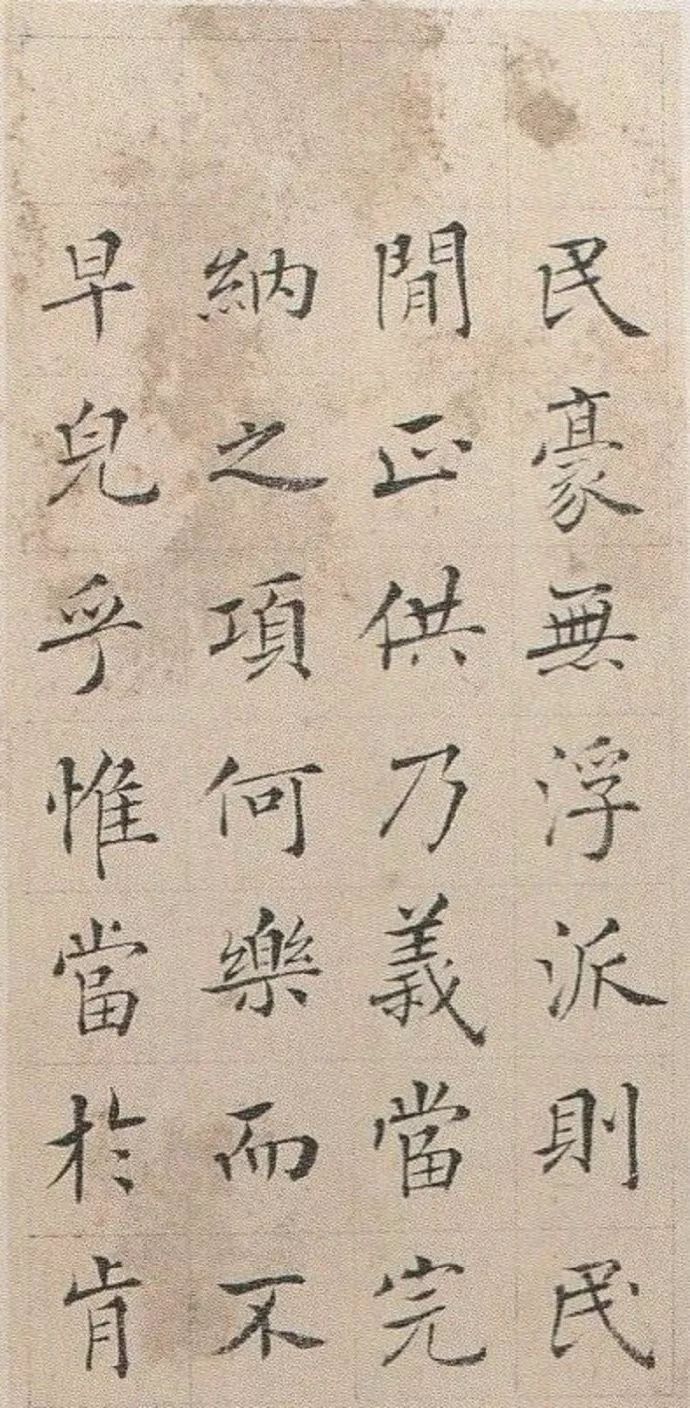 民豪無浮派則民
閒正供乃義當完
納之項何樂而不
早兒乎惟當於肯